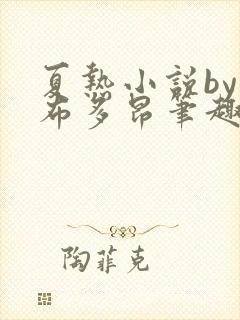 夏热小说by
布多昂笔趣
陶菲克